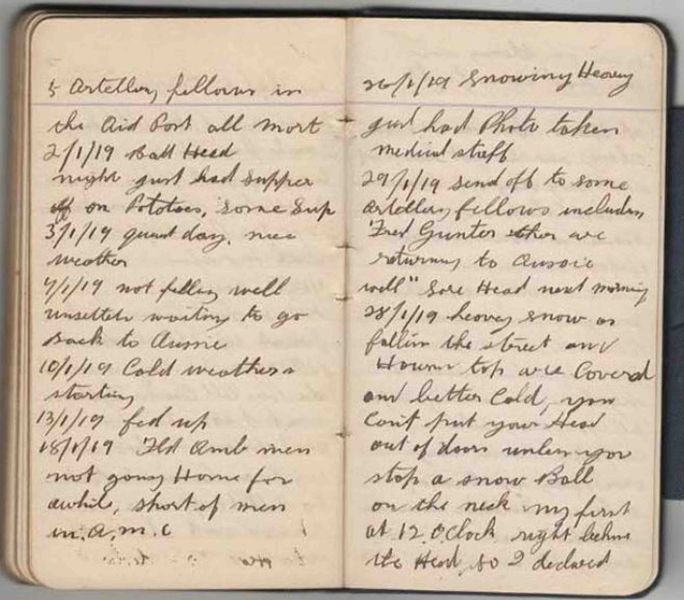 5 Artellery fellows in
the Aid Post all most
2/1/19 Ball Head
night just had supper
on Potatoes, some Sup
3/1/19 quiet day, nice
weather
4/1/19 not felling well
unsettel waiting to go
Back to Aussie
10/1/19 Cold weather
starting
13/1/19 fed up
18/1/19 Fld Amb men
not going Home for
awhile, short of men
in A.M.C
26/1/19 Snowing Heavey
just had Photo taken
medical staff
29/1/19 Send off to some
Artellery fellows including
"Fred Gunter are
returning to Aussie
well" Sore Head next morning
28/1/19 heavey snow
fallin the street and
House top are Coverd
and better Cold, you
Cont put your Head
out of doors unless you
stop a snow Ball
on the neck my first
at 12. OClock right behine
the Head, so I declared